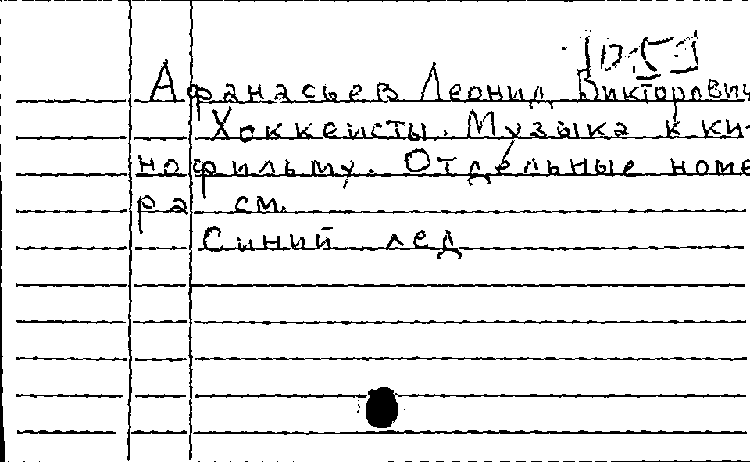 Афанасьев Леонид Викторович
Хоккеисты. Музыка к ки-
нофильму. Отдельные номе
ра см.
Синий лед